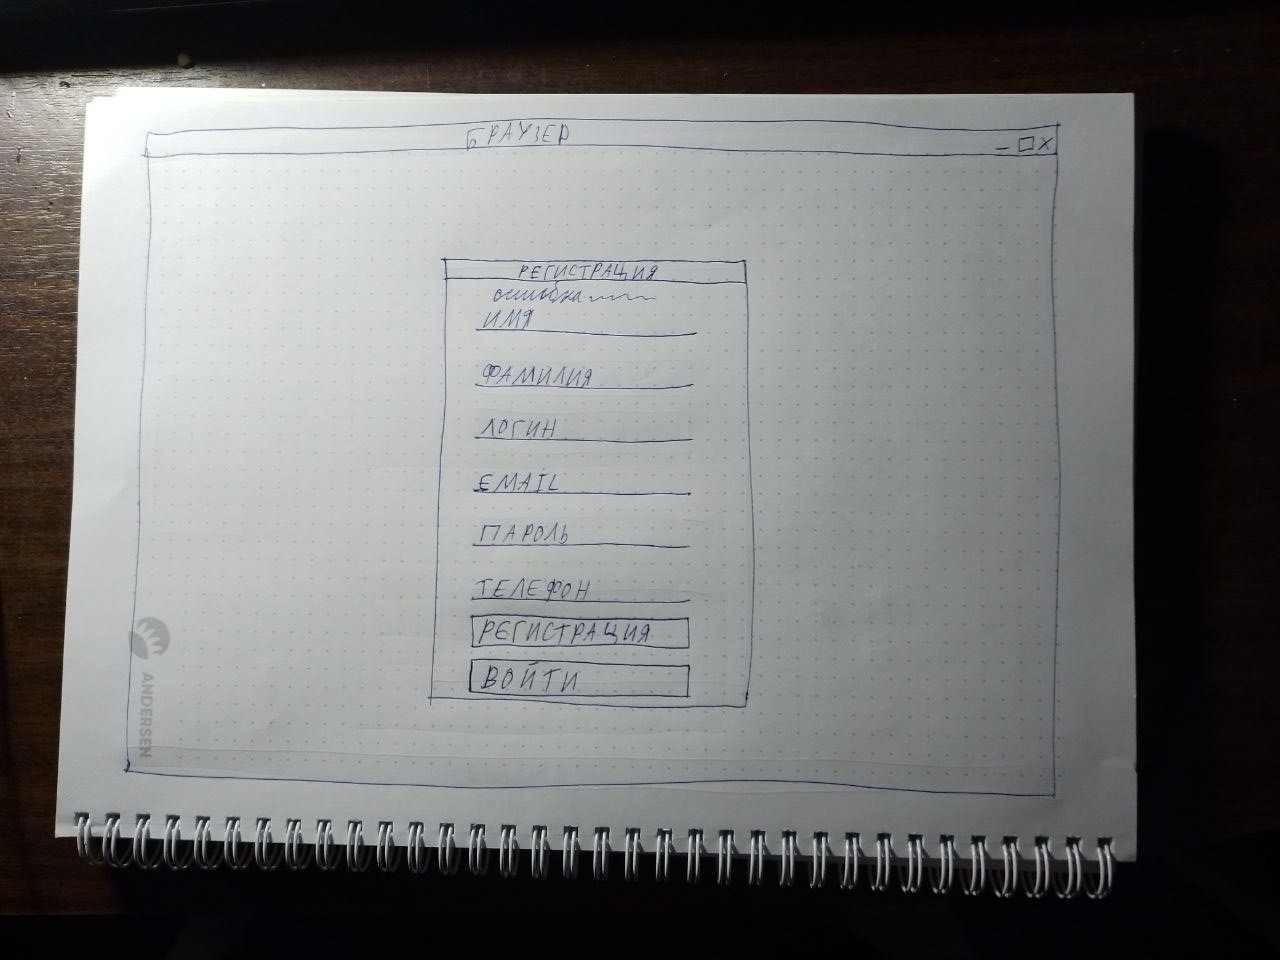 БРАУЗЕР
РЕГИСТРАЦИЯ
ошибка
ИМЯ
ФАМИЛИЯ
ЛОГИН
EMAIL
ПАРОЛЬ
ТЕЛЕФОН
РЕГИСТРАЦИЯ
ВОЙТИ
ANDERSEN